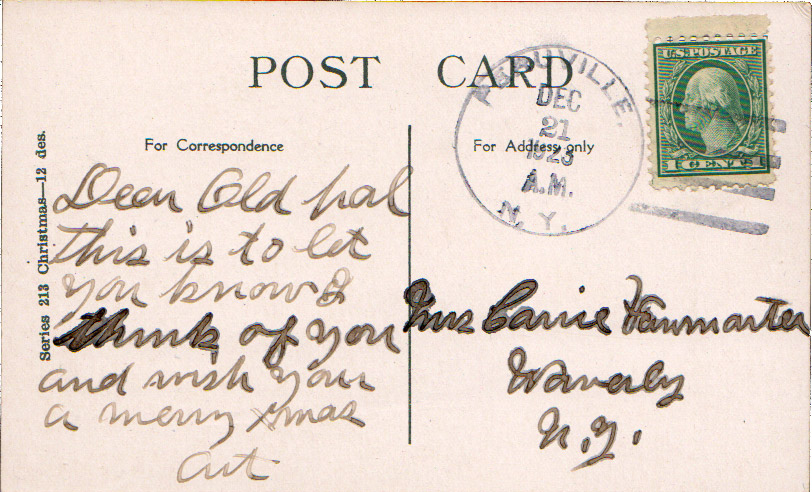 POST CARD
U.S. POSTAGE
1 CENT 1
DEC
21
1923
A.M.
N. Y.
For Correspondence
For Address only
Series 213 Christmas—12 des.
Dear Old pal
this is to let
you know I
think of you
and wish you
a merry xmas
Art
Mrs Carrie Vanmarter
Waverly
N.Y.